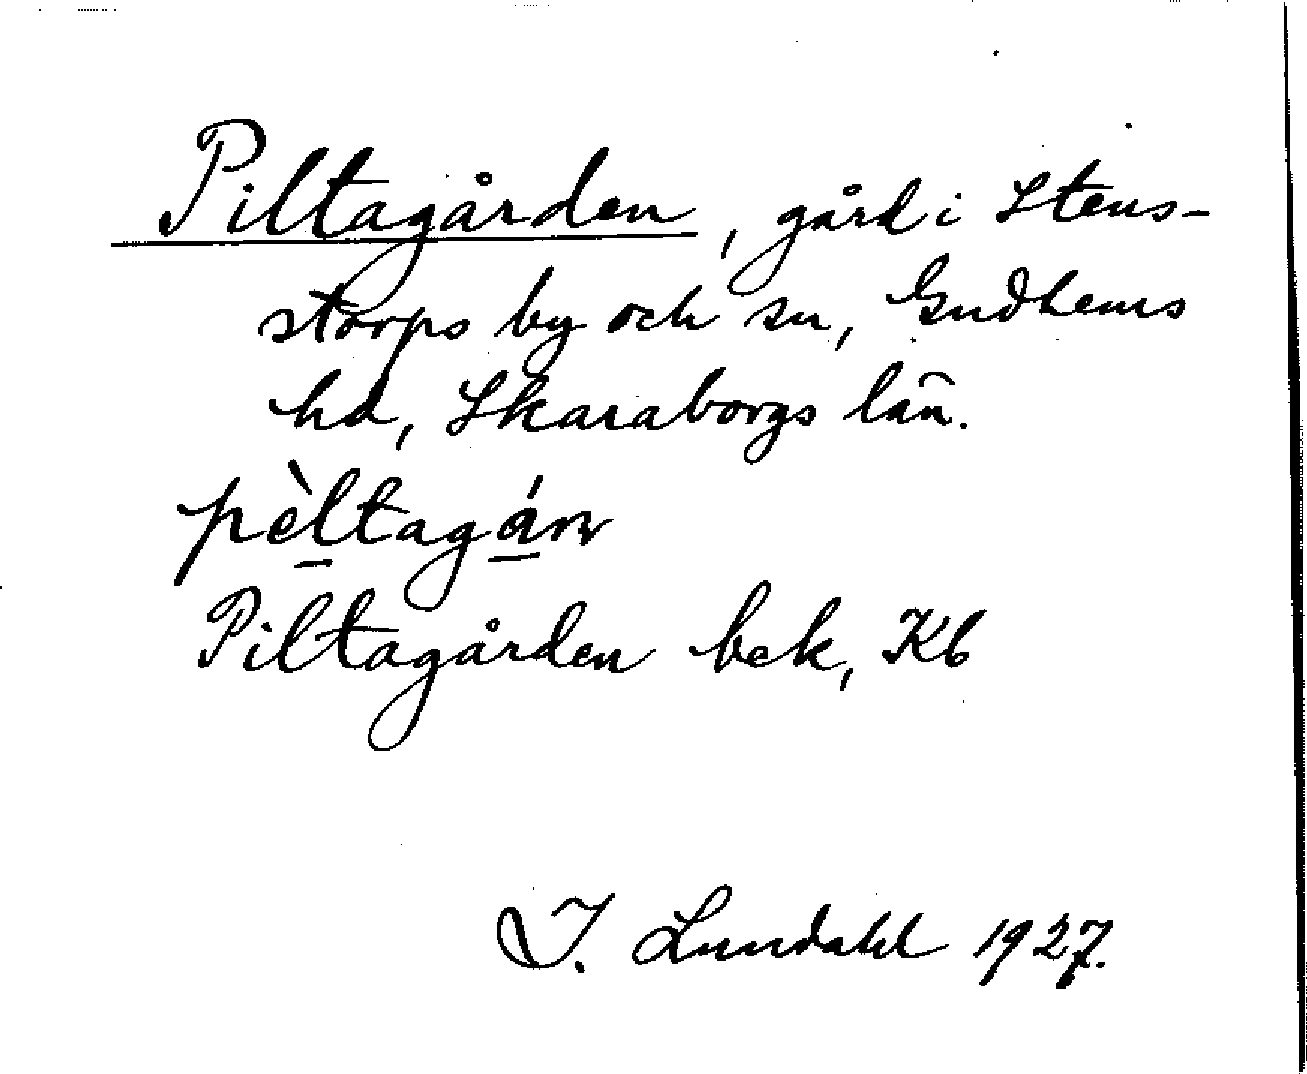 Piltagården, gård i Stens-
storps by och sn, Gudhems
hd, Skaraborgs län.
pèltagán
Piltagården bek, Kb
I. Lundahl 1927.